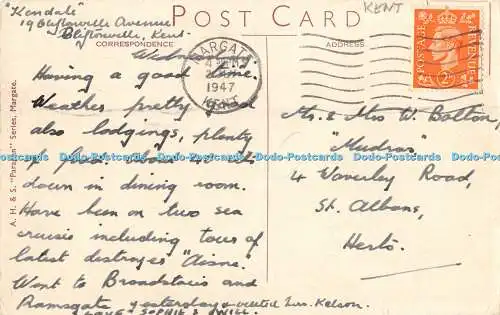 "Kendale"
19 Cliftonville Avenue
Cliftonville, Kent.
POST CARD
KENT
CORRESPONDENCE
ADDRESS
MARGATE
1947
KENT
POSTAGE
REVENUE
2D
Having a good time.
Weather pretty good
also lodgings, plenty
of food, about 40 sit
down in dining room.
Have been on two sea
cruises including tour of
latest destroyer "Aisne".
Went to Broadstairs and
Ramsgate yesterday & visited Mrs. Kelson.
LOVE SOPHIE & WILL.
Mr. & Mrs W. Bolton,
"Mudros"
4 Waverley Road,
St. Albans,
Herts.
A. H. & S. "Paragon" Series, Margate.
Dodo-Postcards Dodo-Postcards Dodo-Postcards Dodo-Postcards Dodo-Postcards Dodo-Postcards